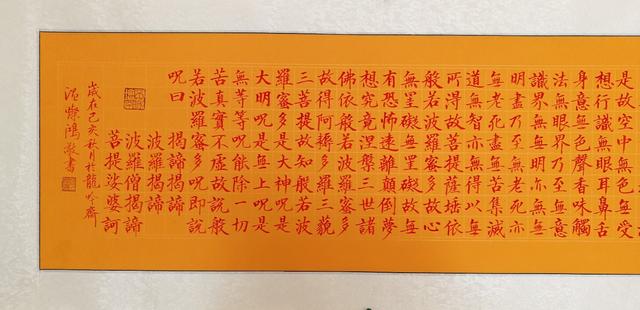 是故空中無色無受
想行識無眼耳鼻舌
身意無色聲香味觸
法無眼界乃至無意
識界無無明亦無無
明盡乃至無老死亦
無老死盡無苦集滅
道無智亦無得以無
所得故菩提薩埵依
般若波羅蜜多故心
無罣礙無罣礙故無
有恐怖遠離顛倒夢
想究竟涅槃三世諸
佛依般若波羅蜜多
故得阿耨多羅三藐
三菩提故知般若波
羅蜜多是大神呪是
大明呪是無上呪是
無等等呪能除一切
苦真實不虛故說般
若波羅蜜多呪即說
呪曰 揭諦揭諦
波羅揭諦
波羅僧揭諦
菩提娑婆訶
歲在己亥秋月於龍吟齋
燦鴻敬書